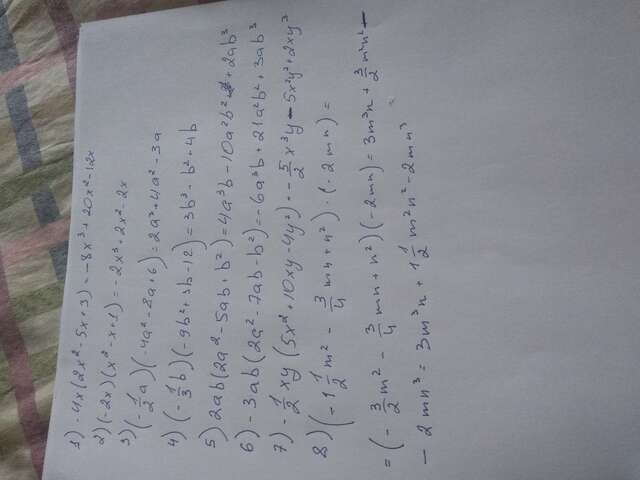 1) -4x(2x²-5x+3)=-8x³+20x²-12x
2) (-2x)(x²-x+1)=-2x³+2x²-2x
3) (-1/2 a)(-4a²-8a+6)=2a³+4a²-3a
4) (-1/3 b)(-9b²+3b-12)=3b³-b²+4b
5) 2ab(2a²-5ab+b²)=4a³b-10a²b²+2ab³
6) -3ab(2a²-7ab-b²)=-6a³b+21a²b²+3ab³
7) -1/2 xy(5x²+10xy-4y²)=-5/2 x³y-5x²y²+2xy³
8) (-1 1/2 m² - 3/4 mn+n²)·(-2mn)=
=(-3/2 m² - 3/4 mn+n²)(-2mn)=3m³n+3/2 m²n²-
-2mn³=3m³n+1 1/2 m²n²-2mn³